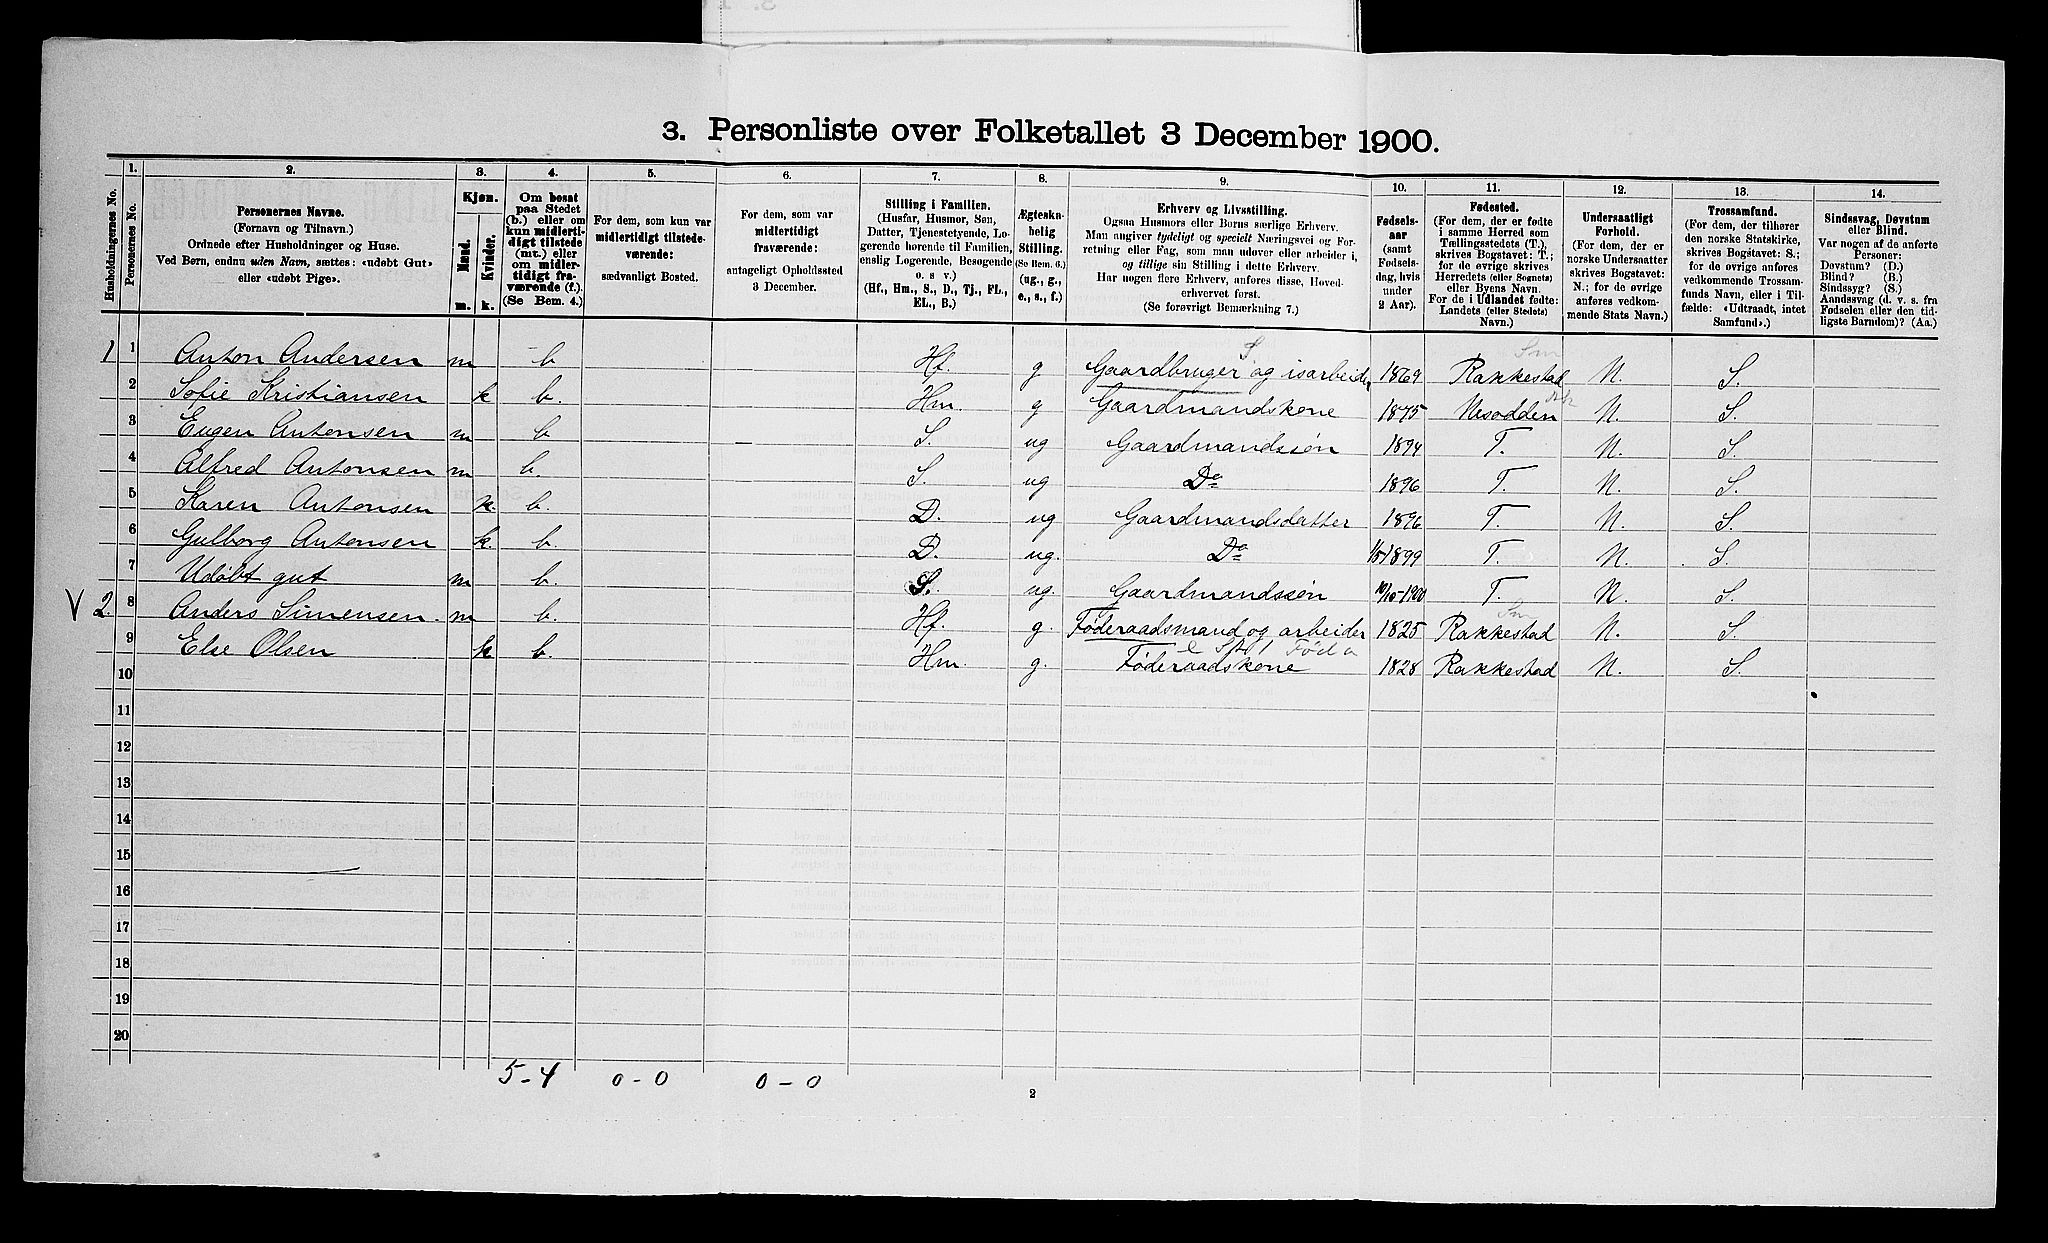 3. Personliste over Folketallet 3 December 1900.
Husholdningernes No.
1. Personernes No.
2. Personernes Navne. (Fornavn og Tilnavn.) Ordnede efter Husholdninger og Huse. Ved Børn, endnu uden Navn, sættes: «udøbt Gut» eller «udøbt Pige».
3. Kjøn. Mænd. m. Kvinder. k.
4. Om bosat paa Stedet (b.) eller om kun midlertidigt tilstede (mt.) eller om midlertidigt fraværende (f.). (Se Bem. 4.)
5. For dem, som kun var midlertidigt tilstedeværende: sædvanligt Bosted.
6. For dem, som var midlertidigt fraværende: antageligt Opholdssted 3 December.
7. Stilling i Familien. (Husfar, Husmor, Søn, Datter, Tjenestetyende, Logerende hørende til Familien, enslig Logerende, Besøgende o. s v.) (Hf., Hm., S., D., Tj., FL., EL., B.)
8. Ægteskabelig Stilling. (Se Bem. 6.) (ug., g., e., s., f.)
9. Erhverv og Livsstilling. Ogsaa Husmors eller Børns særlige Erhverv. Man angiver tydeligt og specielt Næringsvei og Forretning eller Fag, som man udøver eller arbeider i, og tillige sin Stilling i dette Erhverv. Har nogen flere Erhverv, anføres disse, Hovederhvervet først. (Se forøvrigt Bemærkning 7.)
10. Fødselsaar (samt Fødselsdag, hvis under 2 Aar).
11. Fødested. (For dem, der er fødte i samme Herred som Tællingsstedets (T.), skrives Bogstavet: T.; for de øvrige skrives Herredets (eller Sognets) eller Byens Navn. For de i Udlandet fødte: Landets (eller Stedets) Navn.)
12. Undersaatligt Forhold. (For dem, der er norske Undersaatter skrives Bogstavet: N.; for de øvrige anføres vedkommende Stats Navn.)
13. Trossamfund. (For dem, der tilhører den norske Statskirke, skrives Bogstavet: S.; for de øvrige anføres vedkommende Trossamfunds Navn, eller i Tilfælde: «Udtraadt, intet Samfund».)
14. Sindssvag, Døvstum eller Blind. Var nogen af de anførte Personer: Døvstum? (D.) Blind? (B.) Sindssyg? (S.) Aandssvag (d. v. s. fra Fødselen eller den tidligste Barndom)? (Aa.)
1 1 Anton Andersen m b Hf. g Gaardbruger og isarbeider 1869 Rakkestad N. S.
2 Sofie Kristiansen k b. Hm. g Gaardmandskone 1875 Nesodden N. S.
3 Eugen Antonsen m b S. ug Gaardmandssøn 1894 T. N. S.
4 Alfred Antonsen m b. S. ug Do 1896 T. N. S.
5 Karen Antonsen k. b. D. ug Gaardmandsdatter 1896 T. N. S.
6 Gulborg Antonsen k. b. D. ug. Do 1899 T. N. S.
7 Udøbt gut m b. S. ug. Gaardmandssøn 10/10-1900 T. N. S.
V 2. 8 Anders Simensen. m b. Hf. g. Føderaadsmand og arbeider 1825 Rakkestad N. S.
9 Else Olsen k b. Hm. g. Føderaadskone 1828 Rakkestad N. S.
10
11
12
13
14
15
16
17
18
19
20
5-4 0-0 0-0
2